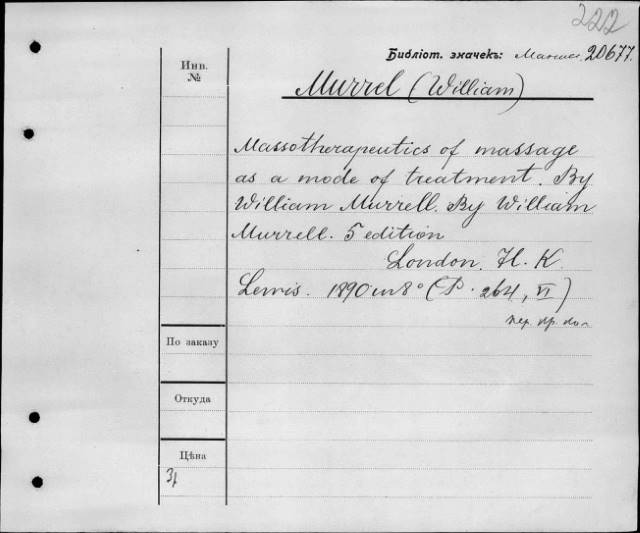 222
Инв. №
Библіот. значекъ: 20677.
Murrel (William)
Massotherapeutics of massage
as a mode of treatment. By
William Murrell. By William
Murrell. 5 edition
London. H. K.
Lewis. 1890 in 8° (P. 264, VI)
пер.
По заказу
Откуда
Цѣна